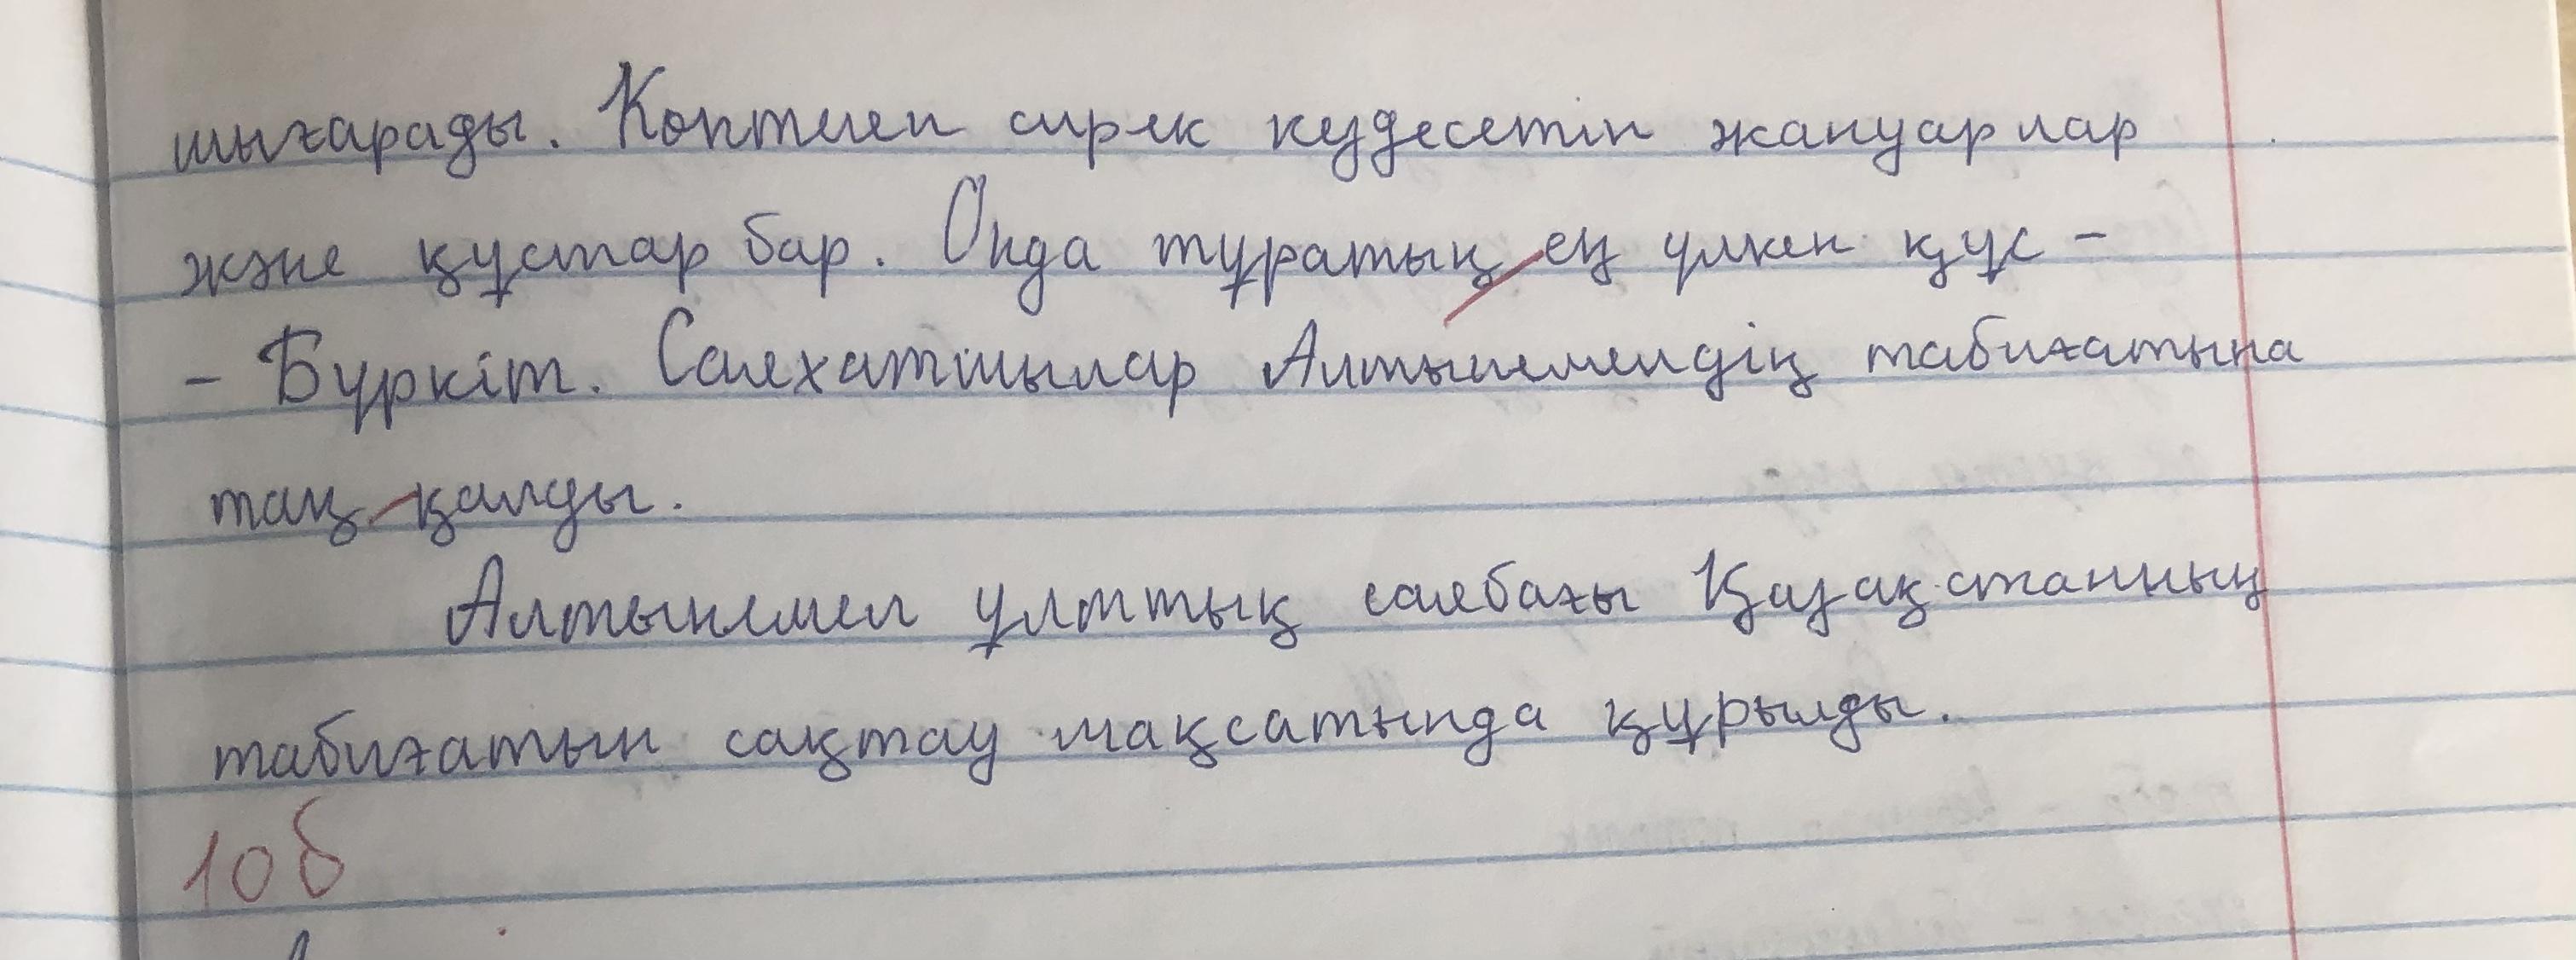 шығарады. Көптеген сирек кездесетін жануарлар
және құстар бар. Онда тұратың ең үлкен құс -
- Бүркіт. Саяхатшылар Алтынемелдің табиғатына
таң қалды.
Алтынемел ұлттық саябағы Қазақстанның
табиғатын сақтау мақсатында құрылды.
10б